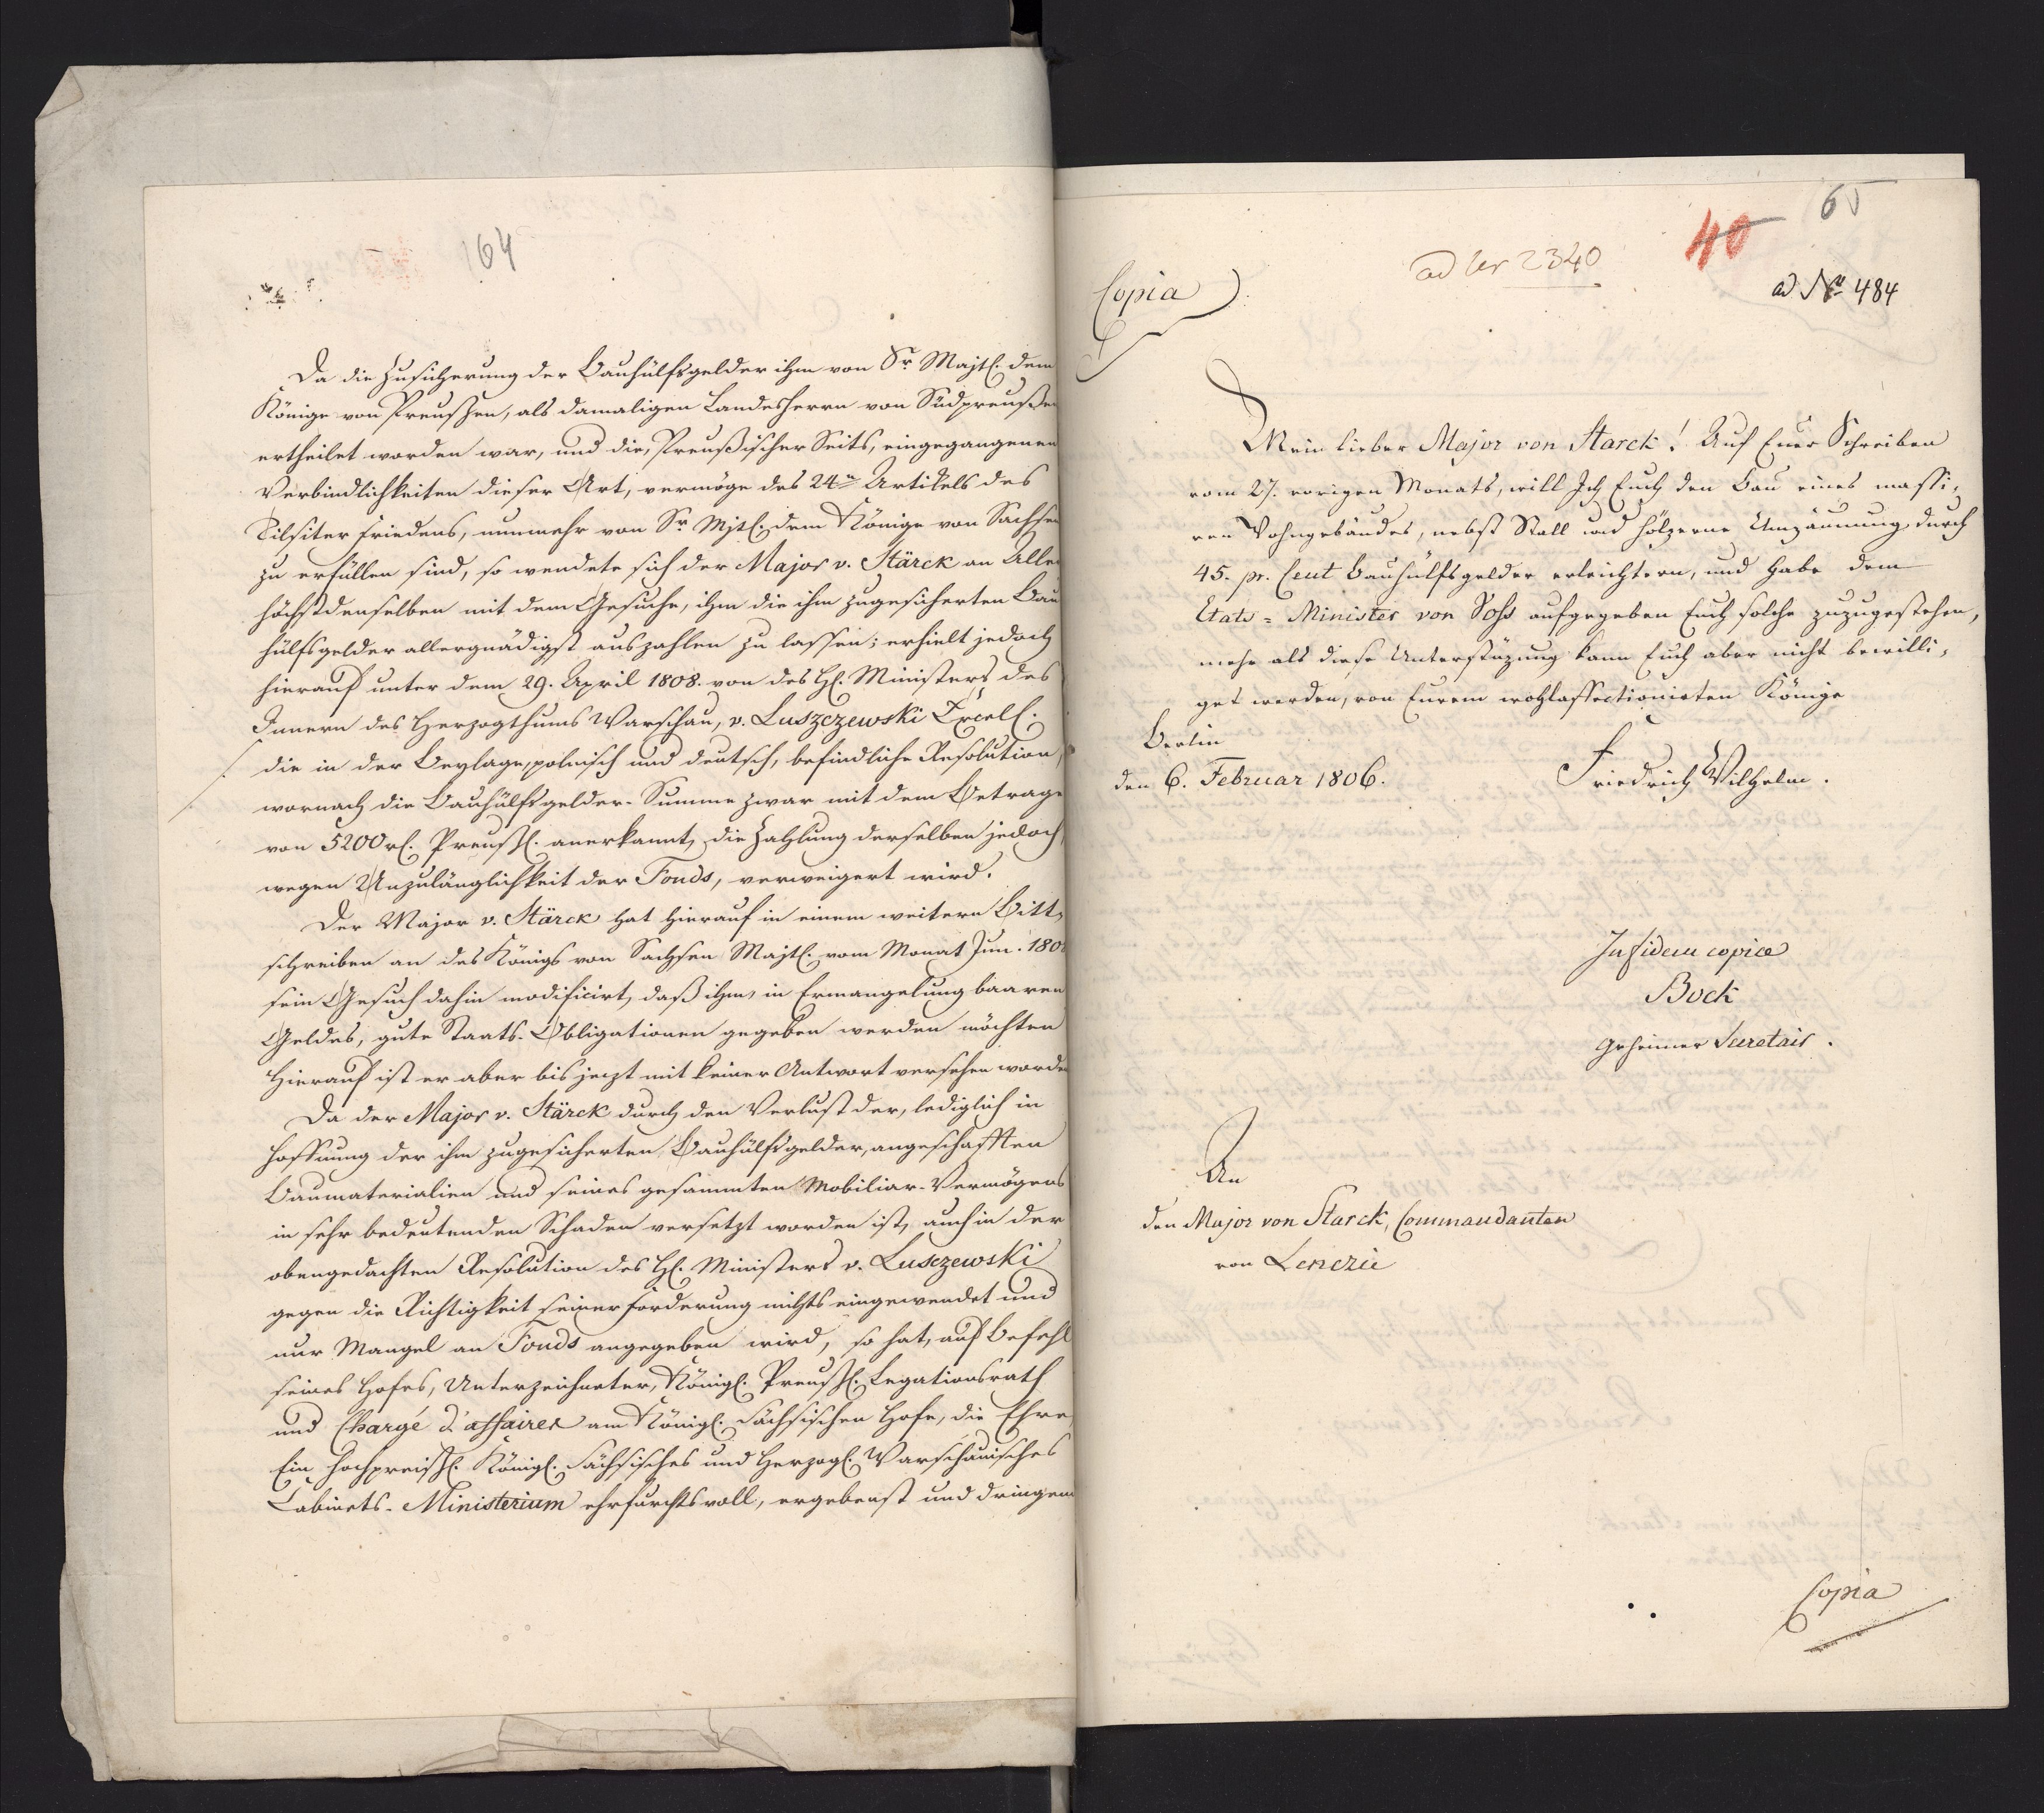 164
Da die Zusicherung der Bauhülfsgelder ihm von Sr. Majtl. dem
Könige von Preußen, als damaligen Landesherrn von Südpreußen
ertheilet worden war, und die, Preußischer Seits, eingegangenen
Verbindlichkeiten dieser Art, vermöge des 24n Artikels des
Tilsiter Friedens, nunmehr von Sr. Mjtl. dem Könige von Sachsen
zu erfüllen sind, so wendete sich der Major v. Stärck an Aller
höchstdenselben mit dem Gesuche, ihm die ihm zugesicherten Bau
hülfsgelder allergnädigst auszahlen zu lassen; erhielt jedoch
hierauf unter dem 29. April 1808. von des H. Ministers des
Innern des Herzogthums Warschau, v. Luszczewski Excell.
die in der Beylage, polnisch und deutsch, befindliche Resolution,
wornach die Bauhülfsgelder-Summe zwar mit dem Betrage
von 5200 rl. Preuß. anerkannt, die Zahlung derselben jedoch,
wegen Unzulänglichkeit der Fonds, verweigert wird.
Der Major v. Stärck hat hierauf in einem weitern Bitt,
schreiben an des Königs von Sachsen Majtl. vom Monat Jun. 180
sein Gesuch dahin modificirt, daß ihm, in Ermangelung baaren
Geldes, gute Staats-Obligationen gegeben werden möchten
Hierauf ist er aber bis jezt mit keiner Antwort versehen worden
Da der Major v. Stärck durch den Verlust der, lediglich in
Hoffnung der ihm zugesicherten Bauhülfsgelder, angeschafften
Baumaterialien und seines gesammten Mobiliar-Vermögens
in sehr bedeutenden Schaden versetzt worden ist, auch in der
obengedachten Resolution des H. Ministers v. Lusczewski
gegen die Richtigkeit seiner Forderung nichts eingewendet und
nur Mangel an Fonds angegeben wird, so hat, auf Befehl
seines Hofes, Unterzeichneter, Königl. Preuß. Legationsrath
und Chargé d'affaires am Königl. Sächsischen Hofe, die Ehre
Ein Hochpreißl. Königl. Sächsisches und Herzogl. Warschauisches
Cabinets-Ministerium ehrfurchtsvoll, ergebenst und dringen
65
40
ad Nr 2340
ad No 484
Copia
Mein lieber Major von Starck! Auf Euer Schreiben
vom 27. vorigen Monats, will Ich Euch den Bau eines massi,
ven Wohngebäudes, nebst Stall und hölzerne Umzäunung durch
45. pr. Cent Bauhülfsgelder erleichtern, und habe dem
Etats-Minister von Voss aufgegeben Euch solche zuzugestehen,
mehr als diese Unterstüzung kann Euch aber nicht bewilli,
get werden, von Eurem wohlaffectionirten Könige
Berlin
den 6. Februar 1806.
Friedrich Wilhelm.
In fidem copiae
Bock
Geheimer Secretair.
An
den Major von Starck, Commandanten
von Lenczic
Copia